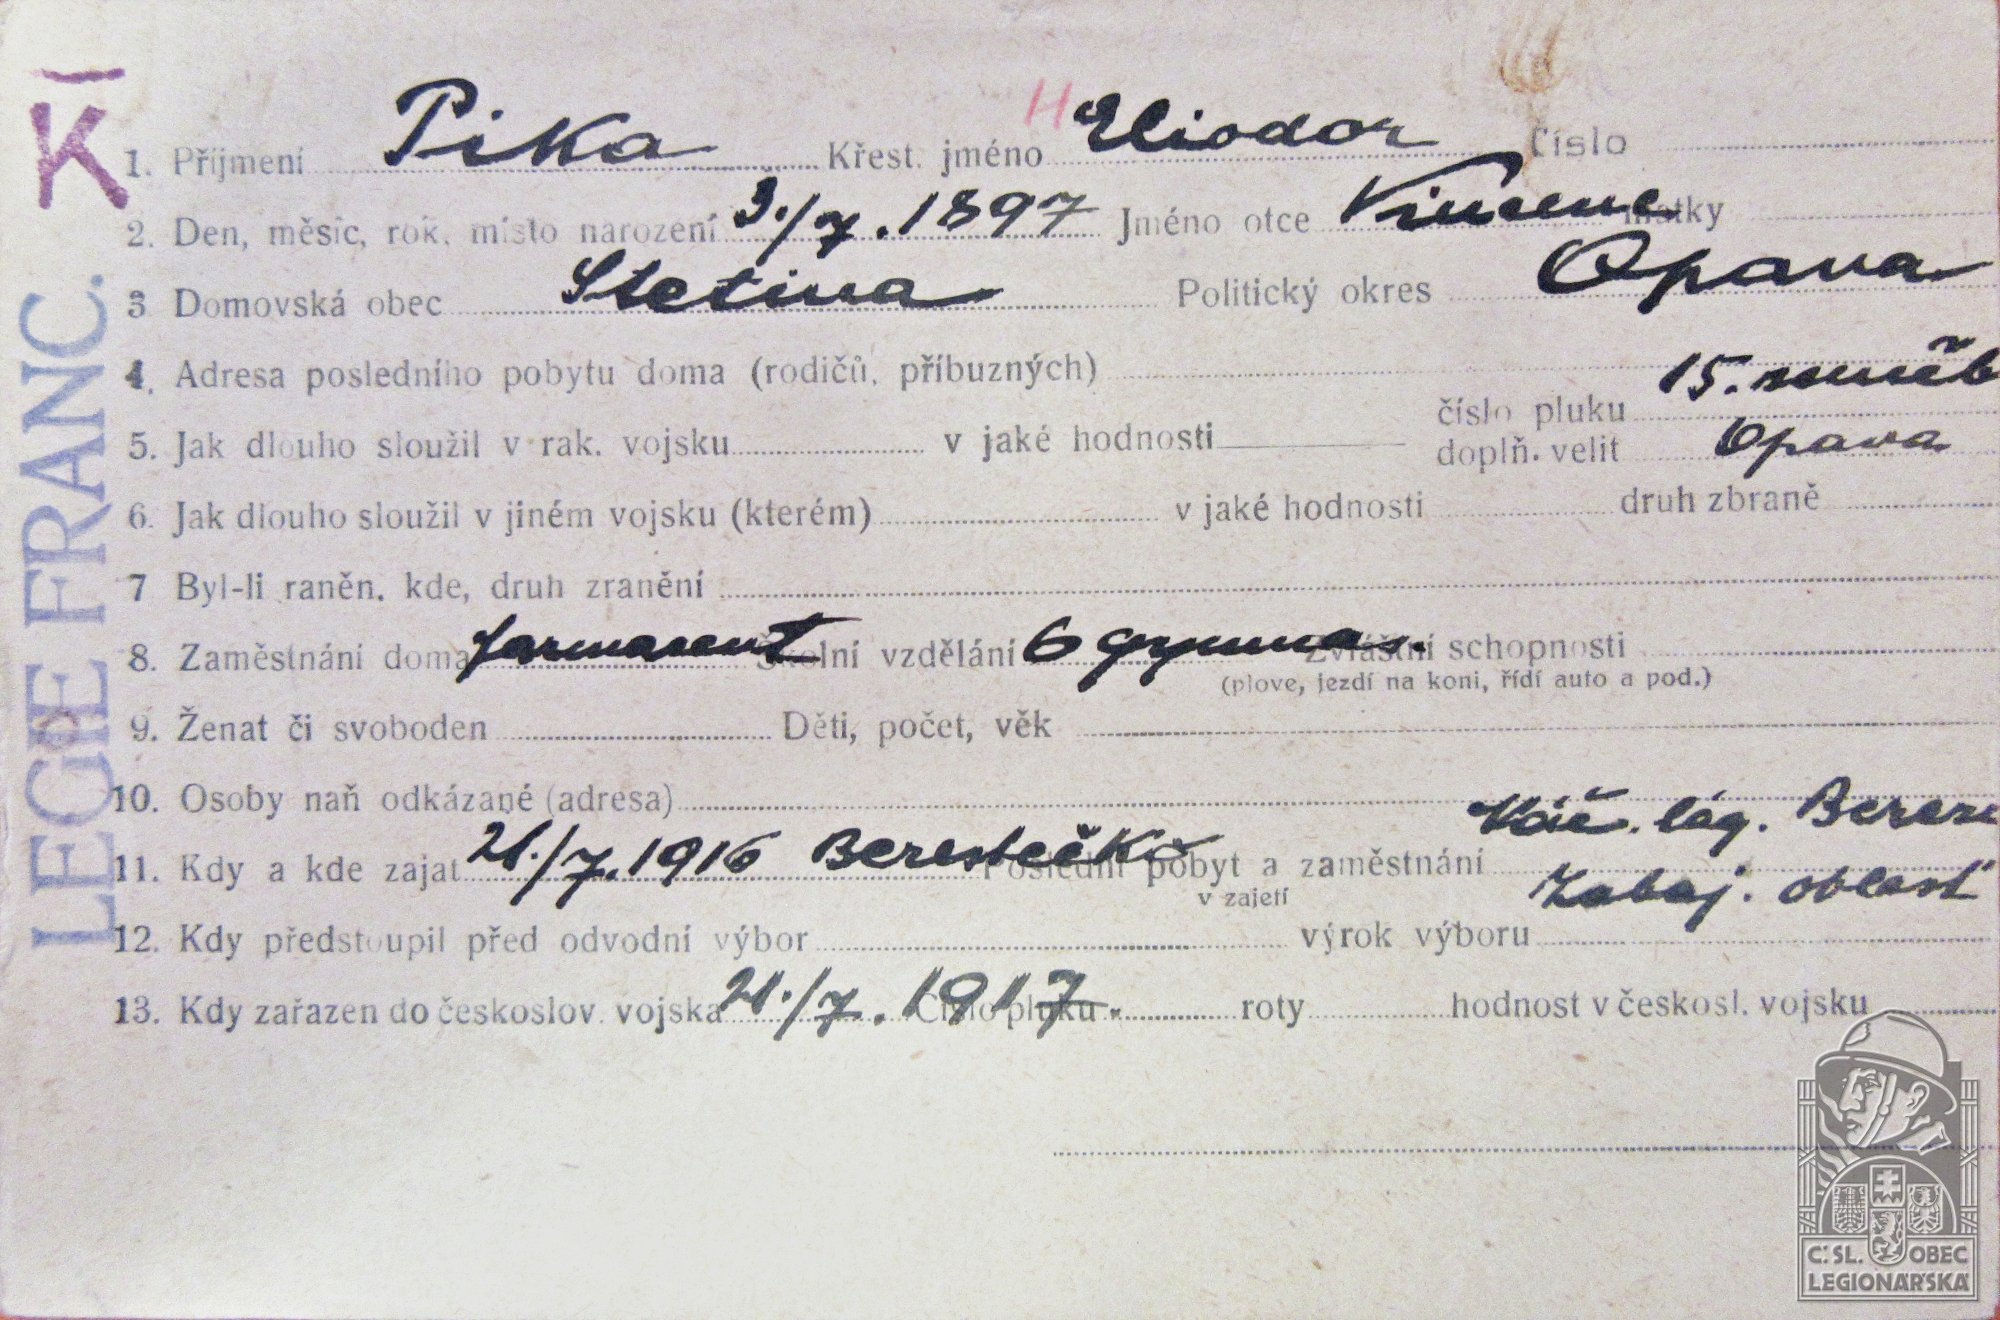 K
LEGIE FRANC.
1. Příjmení Pika Křest. jméno H Eliodor Číslo
2. Den, měsíc, rok, místo narození 3./7. 1897 Jméno otce Vincenc matky
3 Domovská obec Stetina Politický okres Opava
4. Adresa posledního pobytu doma (rodičů, příbuzných)
5. Jak dlouho sloužil v rak. vojsku v jaké hodnosti číslo pluku 15. zeměb
doplň. velit Opava
6. Jak dlouho sloužil v jiném vojsku (kterém) v jaké hodnosti druh zbraně
7 Byl-li raněn, kde, druh zranění
8. Zaměstnání doma farmaceut Školní vzdělání 6 gymnas. Zvláštní schopnosti
(plove, jezdí na koni, řídí auto a pod.)
9. Ženat či svoboden Děti, počet, věk
10. Osoby naň odkázané (adresa)
11. Kdy a kde zajat 21./7. 1916 Berestečko Poslední pobyt a zaměstnání v zajetí Váč. lág. Berez
Zabaj. oblasť
12. Kdy předstoupil před odvodní výbor výrok výboru
13. Kdy zařazen do českoslov. vojska 21./7. 1917. Číslo pluku roty hodnost v českosl. vojsku
Č.SL. OBEC
LEGIONÁŘSKÁ